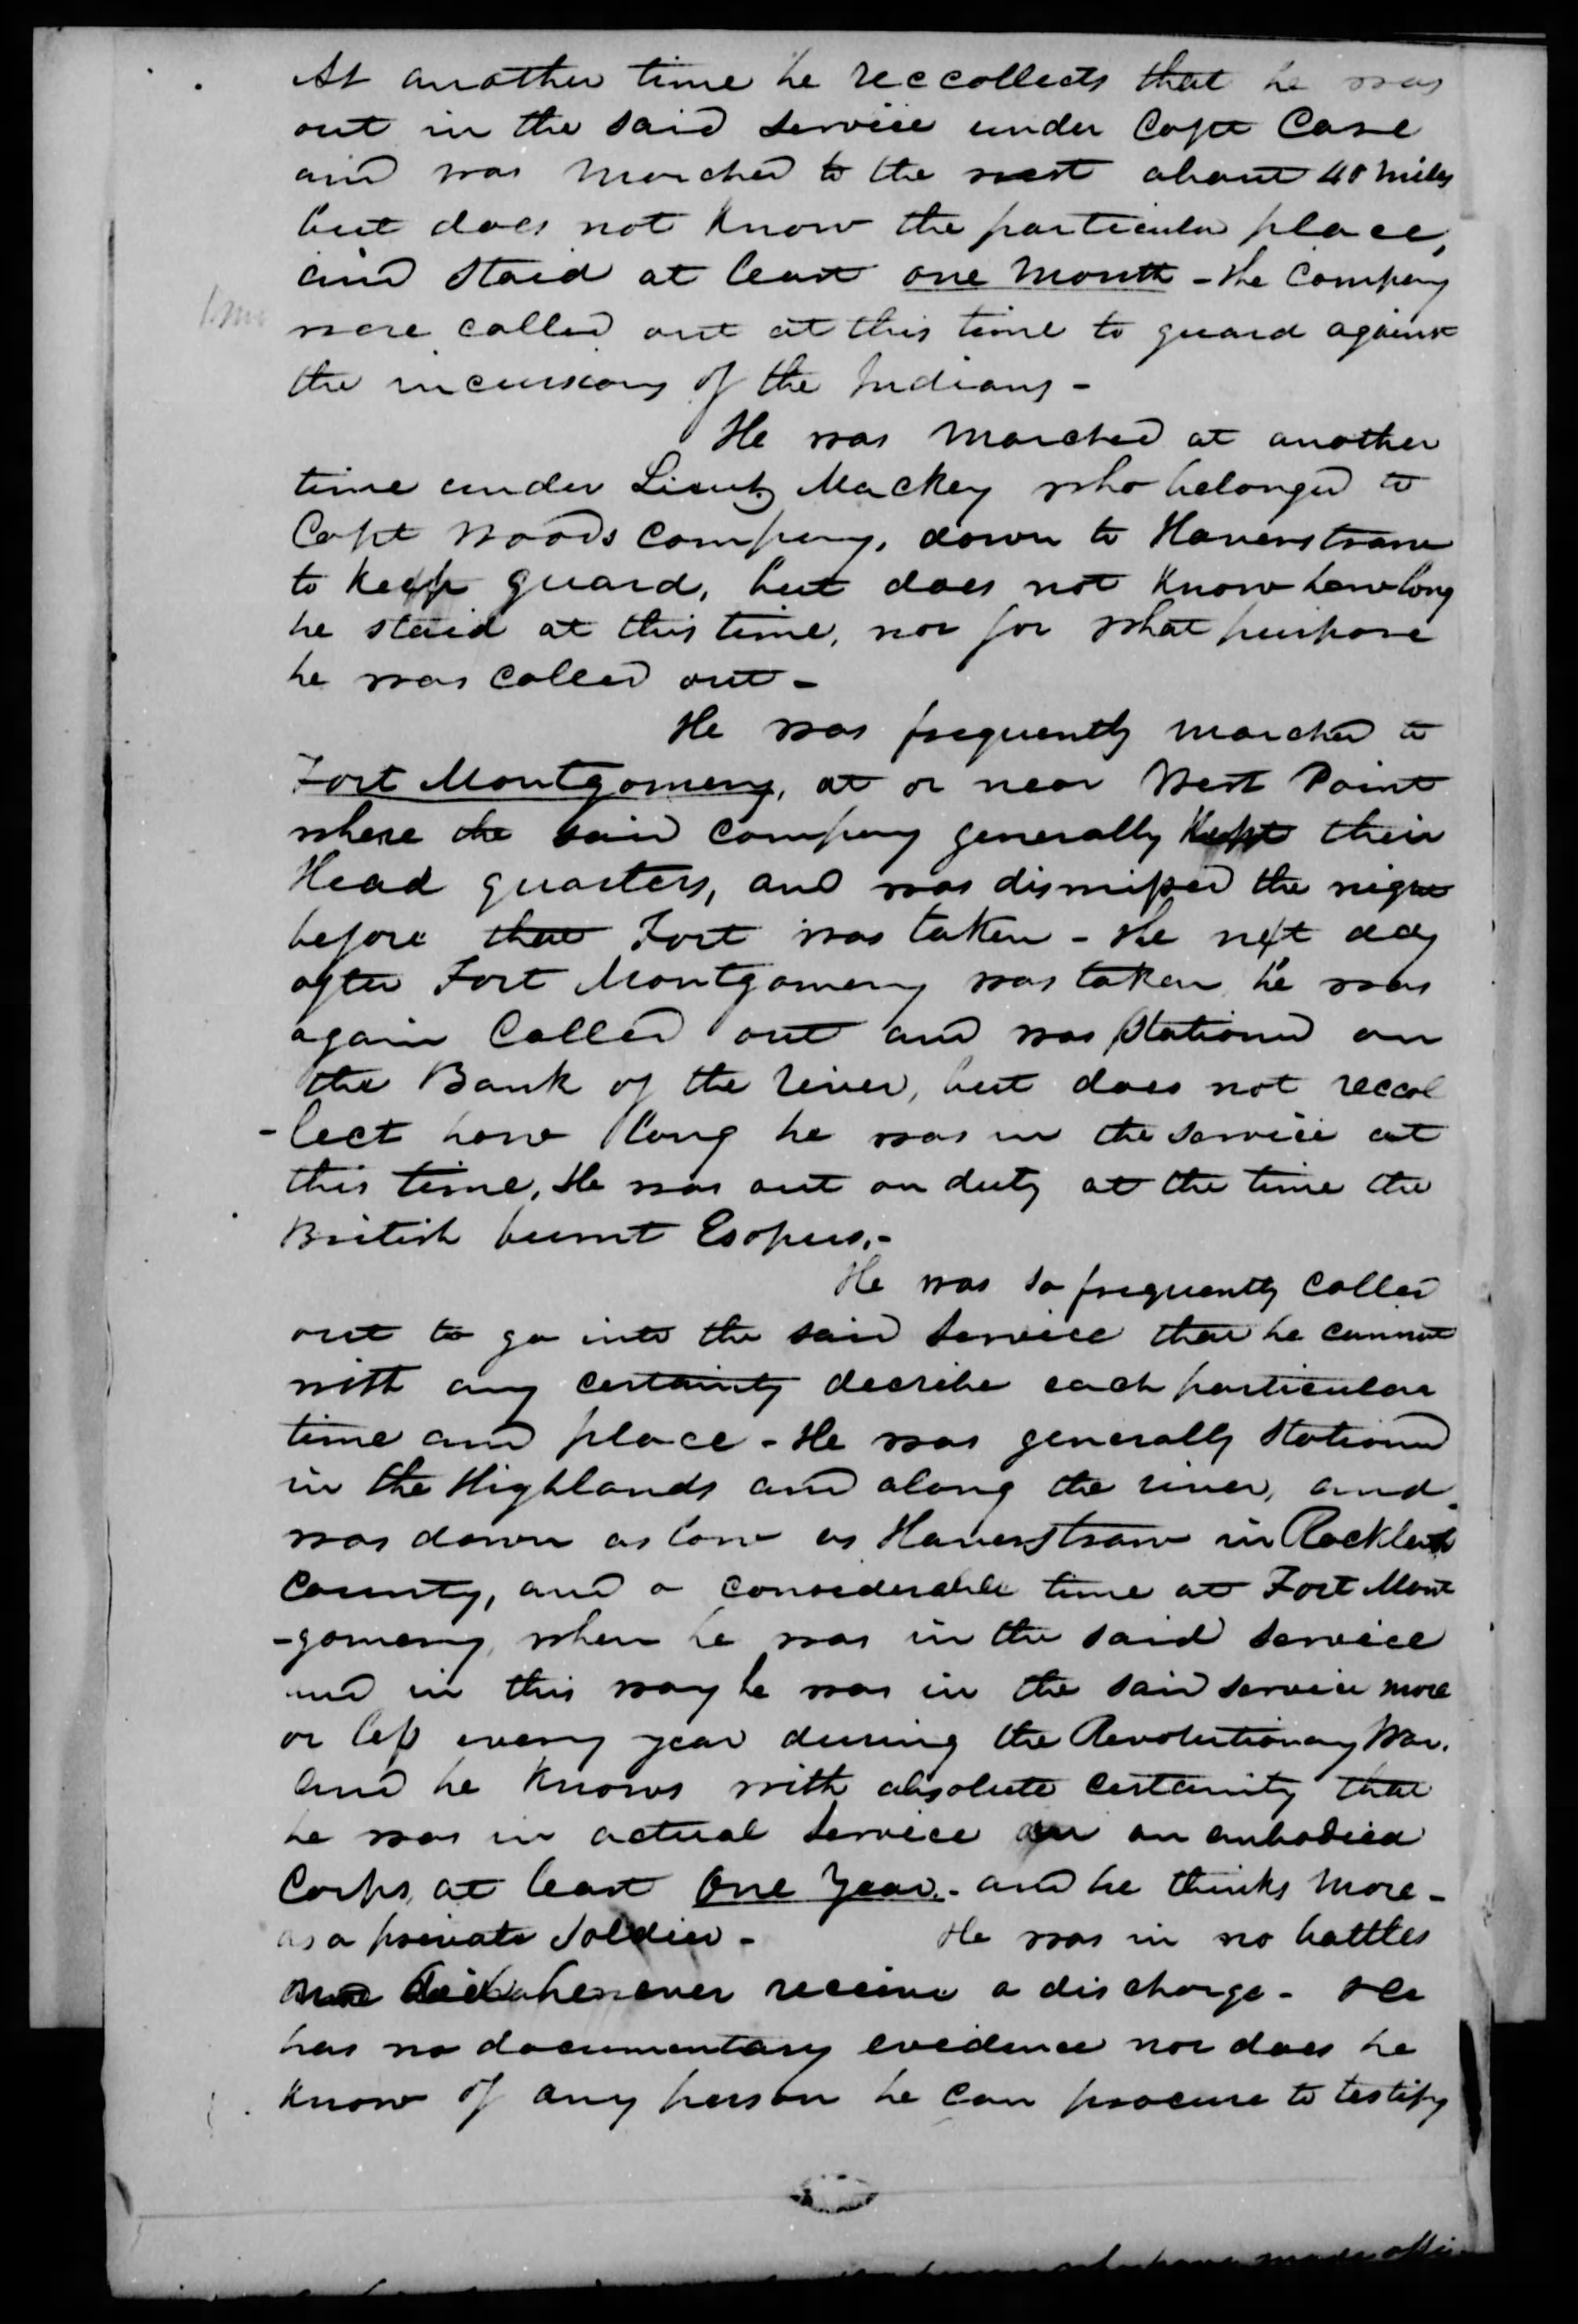 At another time he reccollects that he was
out in the said service under Capt Case
and was marched to the west about 40 miles
but does not know the particular place,
and staid at least one month - the Company
1 mo
were called out at this time to guard against
the incursions of the Indians -
He was marched at another
time under Lieut Mackey who belonged to
Capt Woods company, down to Haverstraw
to keep guard, but does not know how long
he staid at this time, nor for what purpose
he was called out -
He was frequently marched to
Fort Montgomery, at or near West Point
where the said company generally kept their
Head quarters, and was dismissed the night
before that Fort was taken - the next day
after Fort Montgomery was taken he was
again called out and was stationed on
the Bank of the river, but does not reccol
-lect how long he was in the service at
this time, He was out on duty at the time the
British burnt Esopus.-
He was so frequently called
out to go into the said service that he cannot
with any certainty decribe each particular
time and place - He was generally stationed
in the Highlands and along the river, and
was down as low as Haverstraw in Rockland
County, and a considerable time at Fort Mont
-gomery, when he was in the said service
and in this way he was in the said service more
or less every year during the Revolutionary War.
and he knows with absolute certainity that
he was in actual service in an embodied
Corps, at least One Year.- and he thinks more -
as a private Soldier - He was in no battles
did he ever receive a discharge - He
has no documentary evidence nor does he
know of any person he can procure to testify